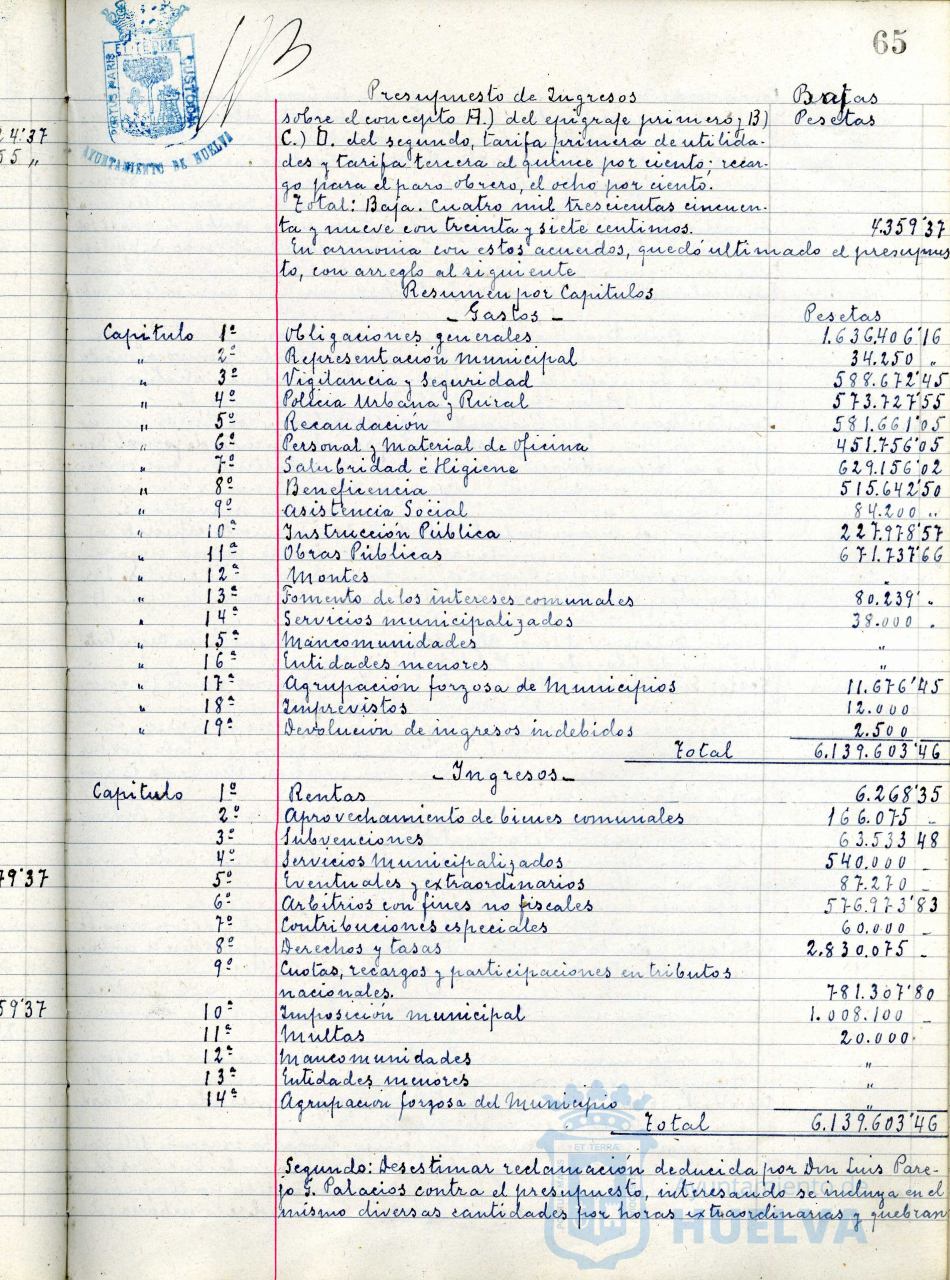 65
Presupuesto de Ingresos Bajas
sobre el concepto A.) del epigrafe primero; B) Pesetas
C.) D. del segundo, tarifa primera de utilida-
des y tarifa tercera al quince por ciento; recar-
go para el paro obrero, el ocho por ciento.
Total: Baja. Cuatro mil trescientas cincuen-
ta y nueve con treinta y siete centimos. 4.359'37
En armonia con estos acuerdos, quedó ultimado el presupues
to, con arreglo al siguiente
Resumen por Capitulos
- Gastos - Pesetas
Capitulo 1º Obligaciones generales 1.636.406'16
" 2º Representación municipal 34.250 "
" 3º Vigilancia y Seguridad 588.672'45
" 4º Policia Urbana y Rural 573.727'55
" 5º Recaudación 581.661'05
" 6º Personal y Material de oficina 451.756'05
" 7º Salubridad é Higiene 629.156'02
" 8º Beneficencia 515.642'50
" 9º Asistencia Social 84.200 "
" 10ª Instrucción Pública 227.978'57
" 11ª Obras Públicas 671.737'66
" 12ª Montes "
" 13ª Fomento de los intereses comunales 80.239' "
" 14ª Servicios municipalizados 38.000 "
" 15ª Mancomunidades "
" 16ª Entidades menores "
" 17ª Agrupación forzosa de Municipios 11.676'45
" 18ª Imprevistos 12.000
" 19ª Devolución de ingresos indebidos 2.500
Total 6.139.603'46
- Ingresos -
Capitulo 1º Rentas 6.268'35
2º Aprovechamiento de bienes comunales 166.075 -
3º Subvenciones 63.533 48
4º Servicios Municipalizados 540.000 -
5º Eventuales y extraordinarios 87.270 -
6º Arbitrios con fines no fiscales 576.973'83
7º Contribuciones especiales 60.000 -
8º Derechos y tasas 2.830.075 -
9º Cuotas, recargos y participaciones en tributos
nacionales. 781.307'80
10ª Imposición municipal 1.008.100 -
11ª Multas 20.000.
12ª Mancomunidades "
13ª Entidades menores "
14ª Agrupación forzosa del Municipio "
Total 6.139.603'46
Segundo: Desestimar reclamación deducida por Don Luis Pare-
jo G. Palacios contra el presupuesto, interesando se incluya en el
mismo diversas cantidades por horas extraordinarias y quebran
4'37
55 "
79'37
59'37
PORTUS MARIS ET TERRE CUSTODIA
AYUNTAMIENTO DE HUELVA
ET TERRÆ
Ayuntamiento de
HUELVA